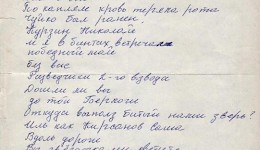 По капляле кровь теряка рота
Чуйко был ранен
Пурзин Николай
М я в бинтах встречали
победный май
Без вас
Разведчики 2-го взвода
Дошли мы вы
до той Берлоги
Откуда выполз битый нами зверь?
Иль как Кирсанов Саша
Вдоль дороги
Вы